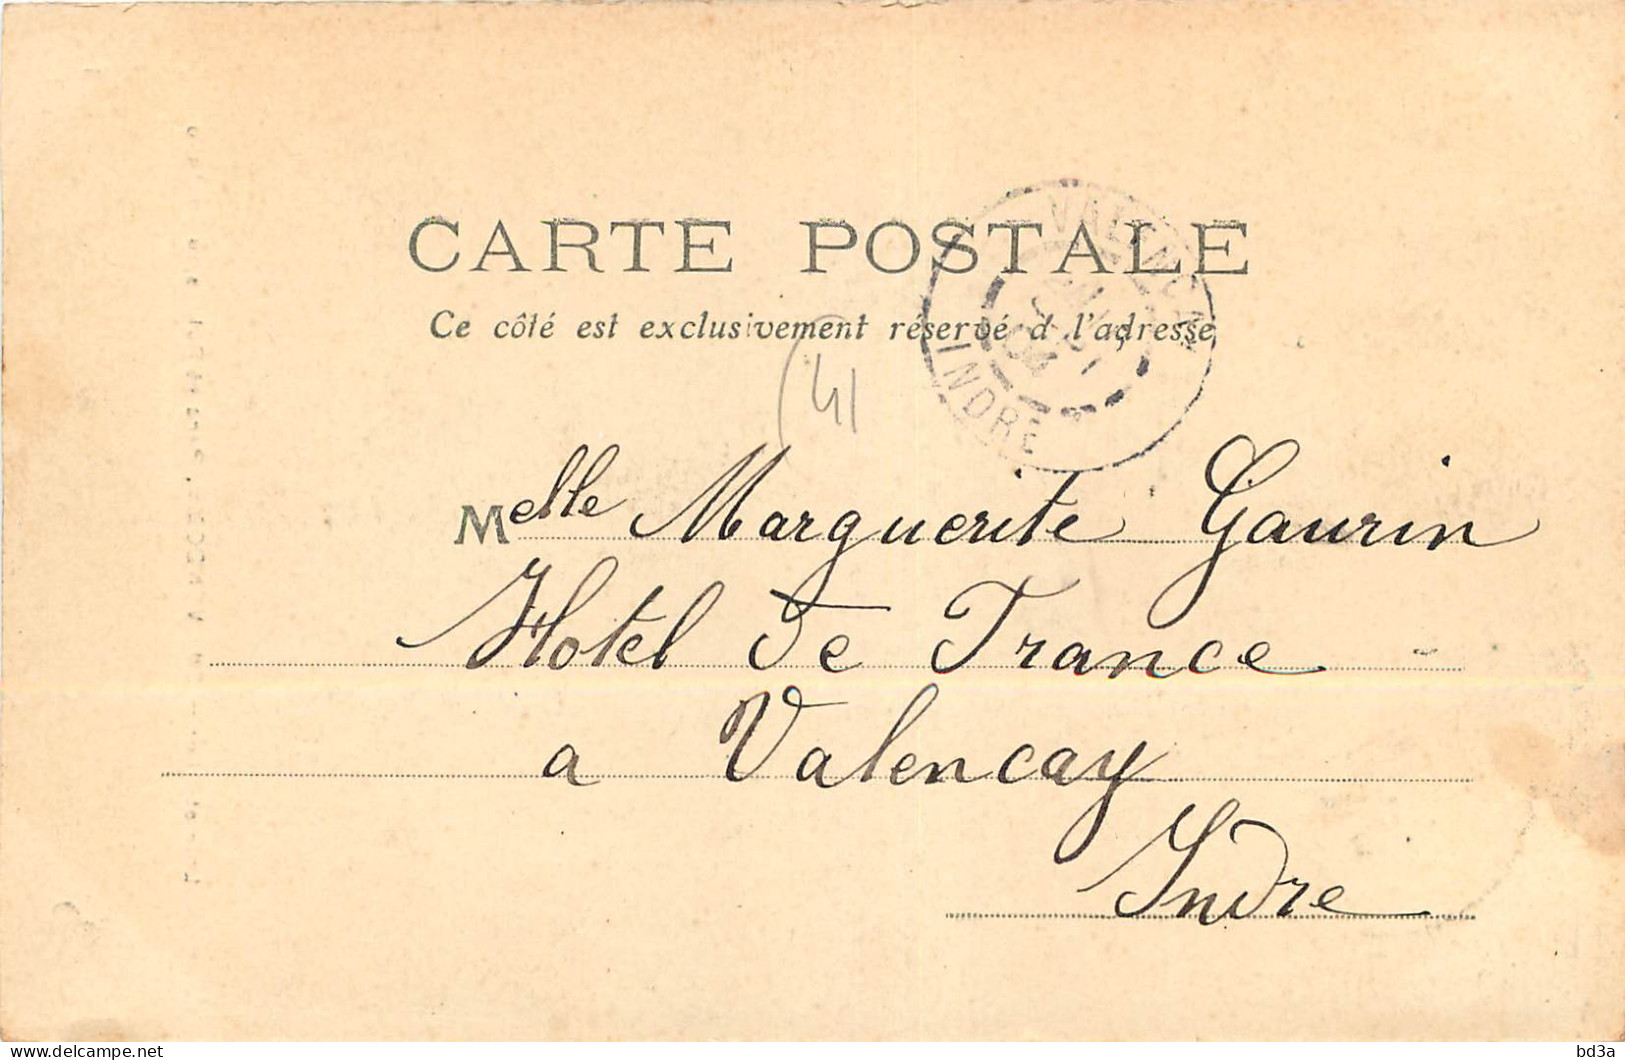 CARTE POSTALE
Ce côté est exclusivement réservé à l'adresse
VALENCAY
INDRE
04
41
Melle Marguerite Gaurin
Hotel de France
a Valencay
Indre
bd3a